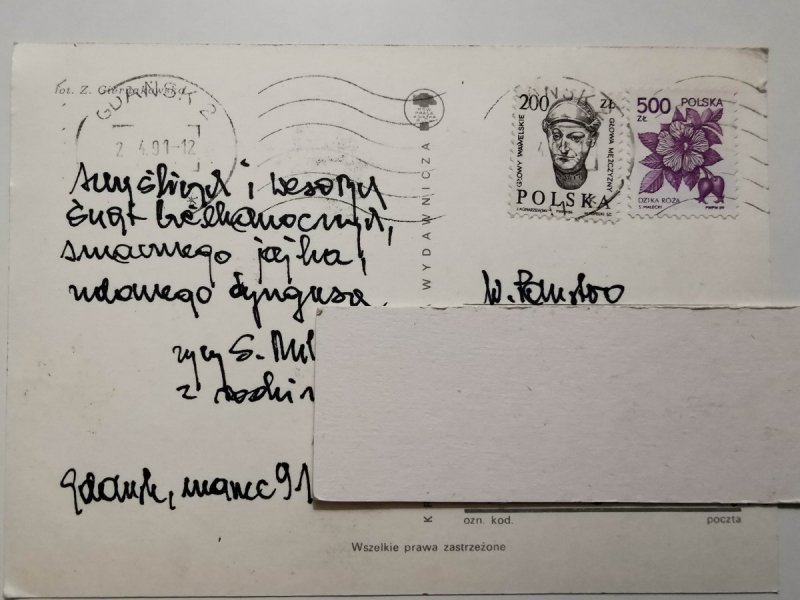 fot. Z. Gierzakowska
GDAŃSK 2
2 4.91-12
200 ZŁ
GŁOWY WAWELSKIE
GŁOWA MĘŻCZYZNY
POLSKA
500 ZŁ
POLSKA
DZIKA RÓŻA
S. MAŁECKI
i wesołych
Świąt Wielkanocnych,
smacznego jajka,
udanego dyngusa
życzy S.
z
Gdańsk, marzec 91
W. Państwo
WYDAWNICZA
ozn. kod.
poczta
Wszelkie prawa zastrzeżone